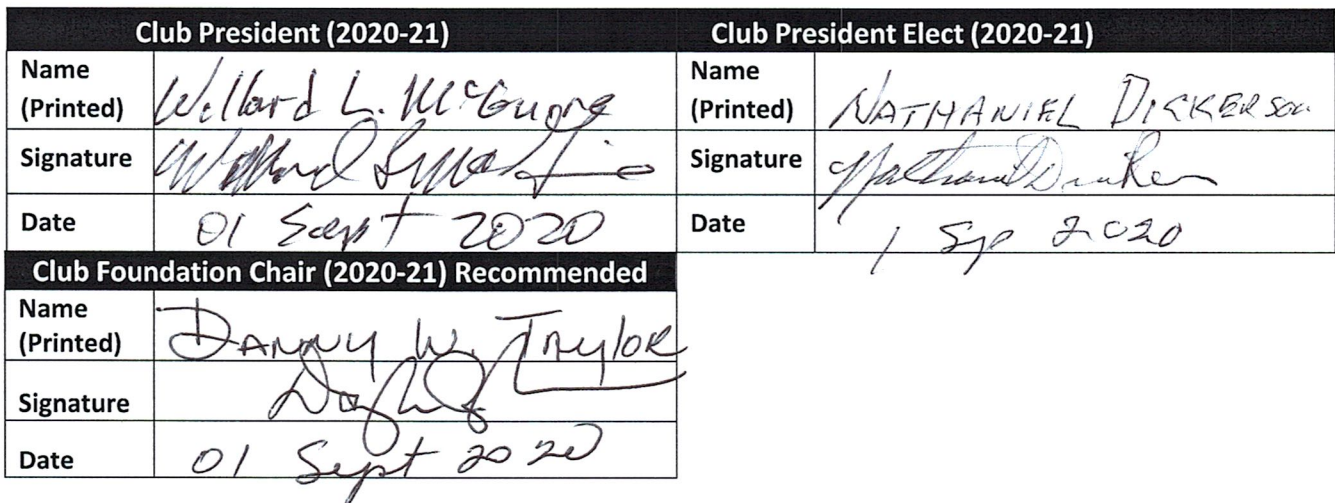 Club President (2020-21)
Name (Printed) Willard L. McGuire
Signature
Date 01 Sept 2020
Club President Elect (2020-21)
Name (Printed) NATHANIEL DICKERSON
Signature
Date 1 Sep 2020
Club Foundation Chair (2020-21) Recommended
Name (Printed) DANNY W. TAYLOR
Signature
Date 01 Sept 2020